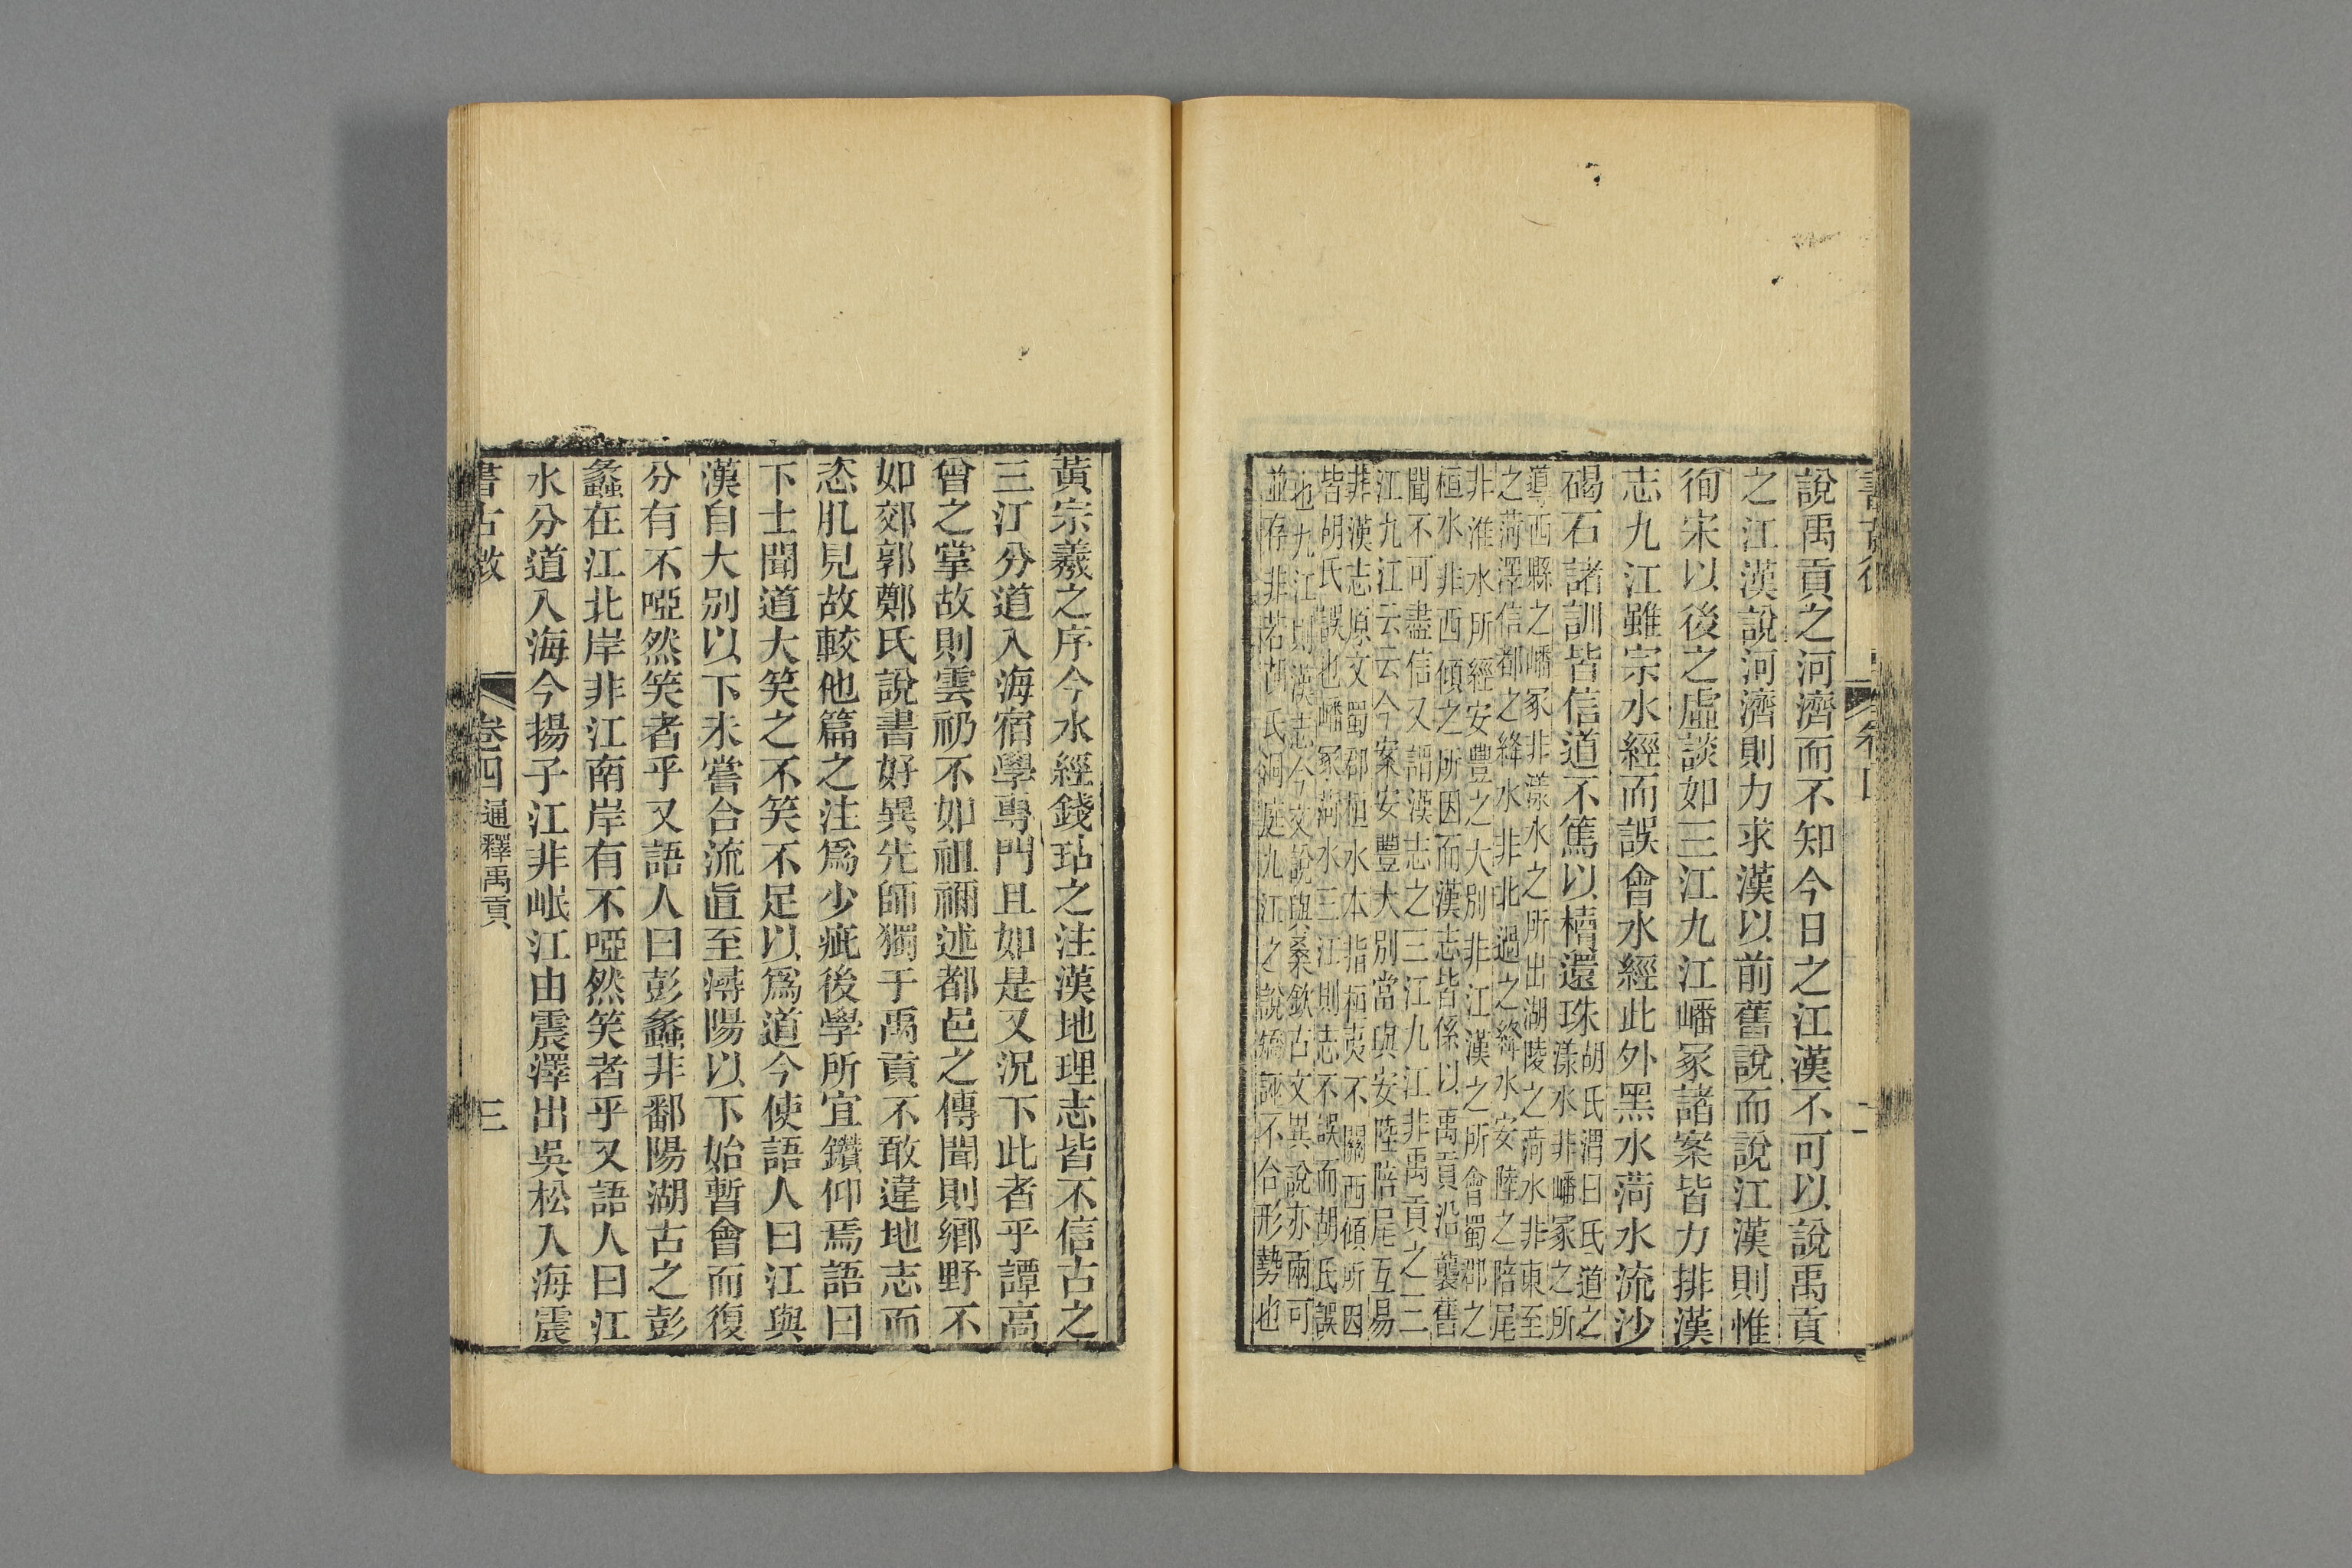 說禹貢之河濟而不知今日之江漢不可以說禹貢
之江漢說河濟則力求漢以前舊說而說江漢則惟
徇宋以後之虛談如三江九江嶓冢諸案皆力排漢
志九江雖宗水經而誤會水經此外黑水菏水流沙
碣石諸訓皆信道不篤以櫝還珠
胡氏渭曰氐道之
漾水非嶓冢之所
導西縣之嶓冢非漾水之所出湖陵之菏水非東至
之菏澤信都之絳水非北過之絳水安陸之陪尾
非淮水所經安豐之大別非江漢之所會蜀郡之
桓水非西傾之所因而漢志皆係以禹貢沿襲舊
聞不可盡信又謂漢志之三江九江非禹貢之三
江九江云云今案安豐大別當與安陸陪尾互易
非漢志原文蜀郡桓水本指桓夷不關西傾所因
皆胡氏誤也嶓冢菏水三江則志不誤而胡氏誤
也九江則漢志今文說與桑欽古文異說亦兩可
並存非若胡氏洞庭九江之說矯誣不合形勢也
黃宗羲之序今水經錢坫之注漢地理志皆不信古之
三江分道入海宿學專門且如是又況下此者乎譚高
曾之掌故則雲礽不如祖禰述都邑之傳聞則鄉野不
如郊郭鄭氏說書好異先師獨于禹貢不敢違地志而
恣肊見故較他篇之注爲少疵後學所宜鑽仰焉語曰
下士聞道大笑之不笑不足以爲道今使語人曰江與
漢自大別以下未嘗合流直至潯陽以下始暫會而復
分有不啞然笑者乎又語人曰彭蠡非鄱陽湖古之彭
蠡在江北岸非江南岸有不啞然笑者乎又語人曰江
水分道入海今揚子江非岷江由震澤出吳松入海震
書古微
卷四通釋禹貢
三